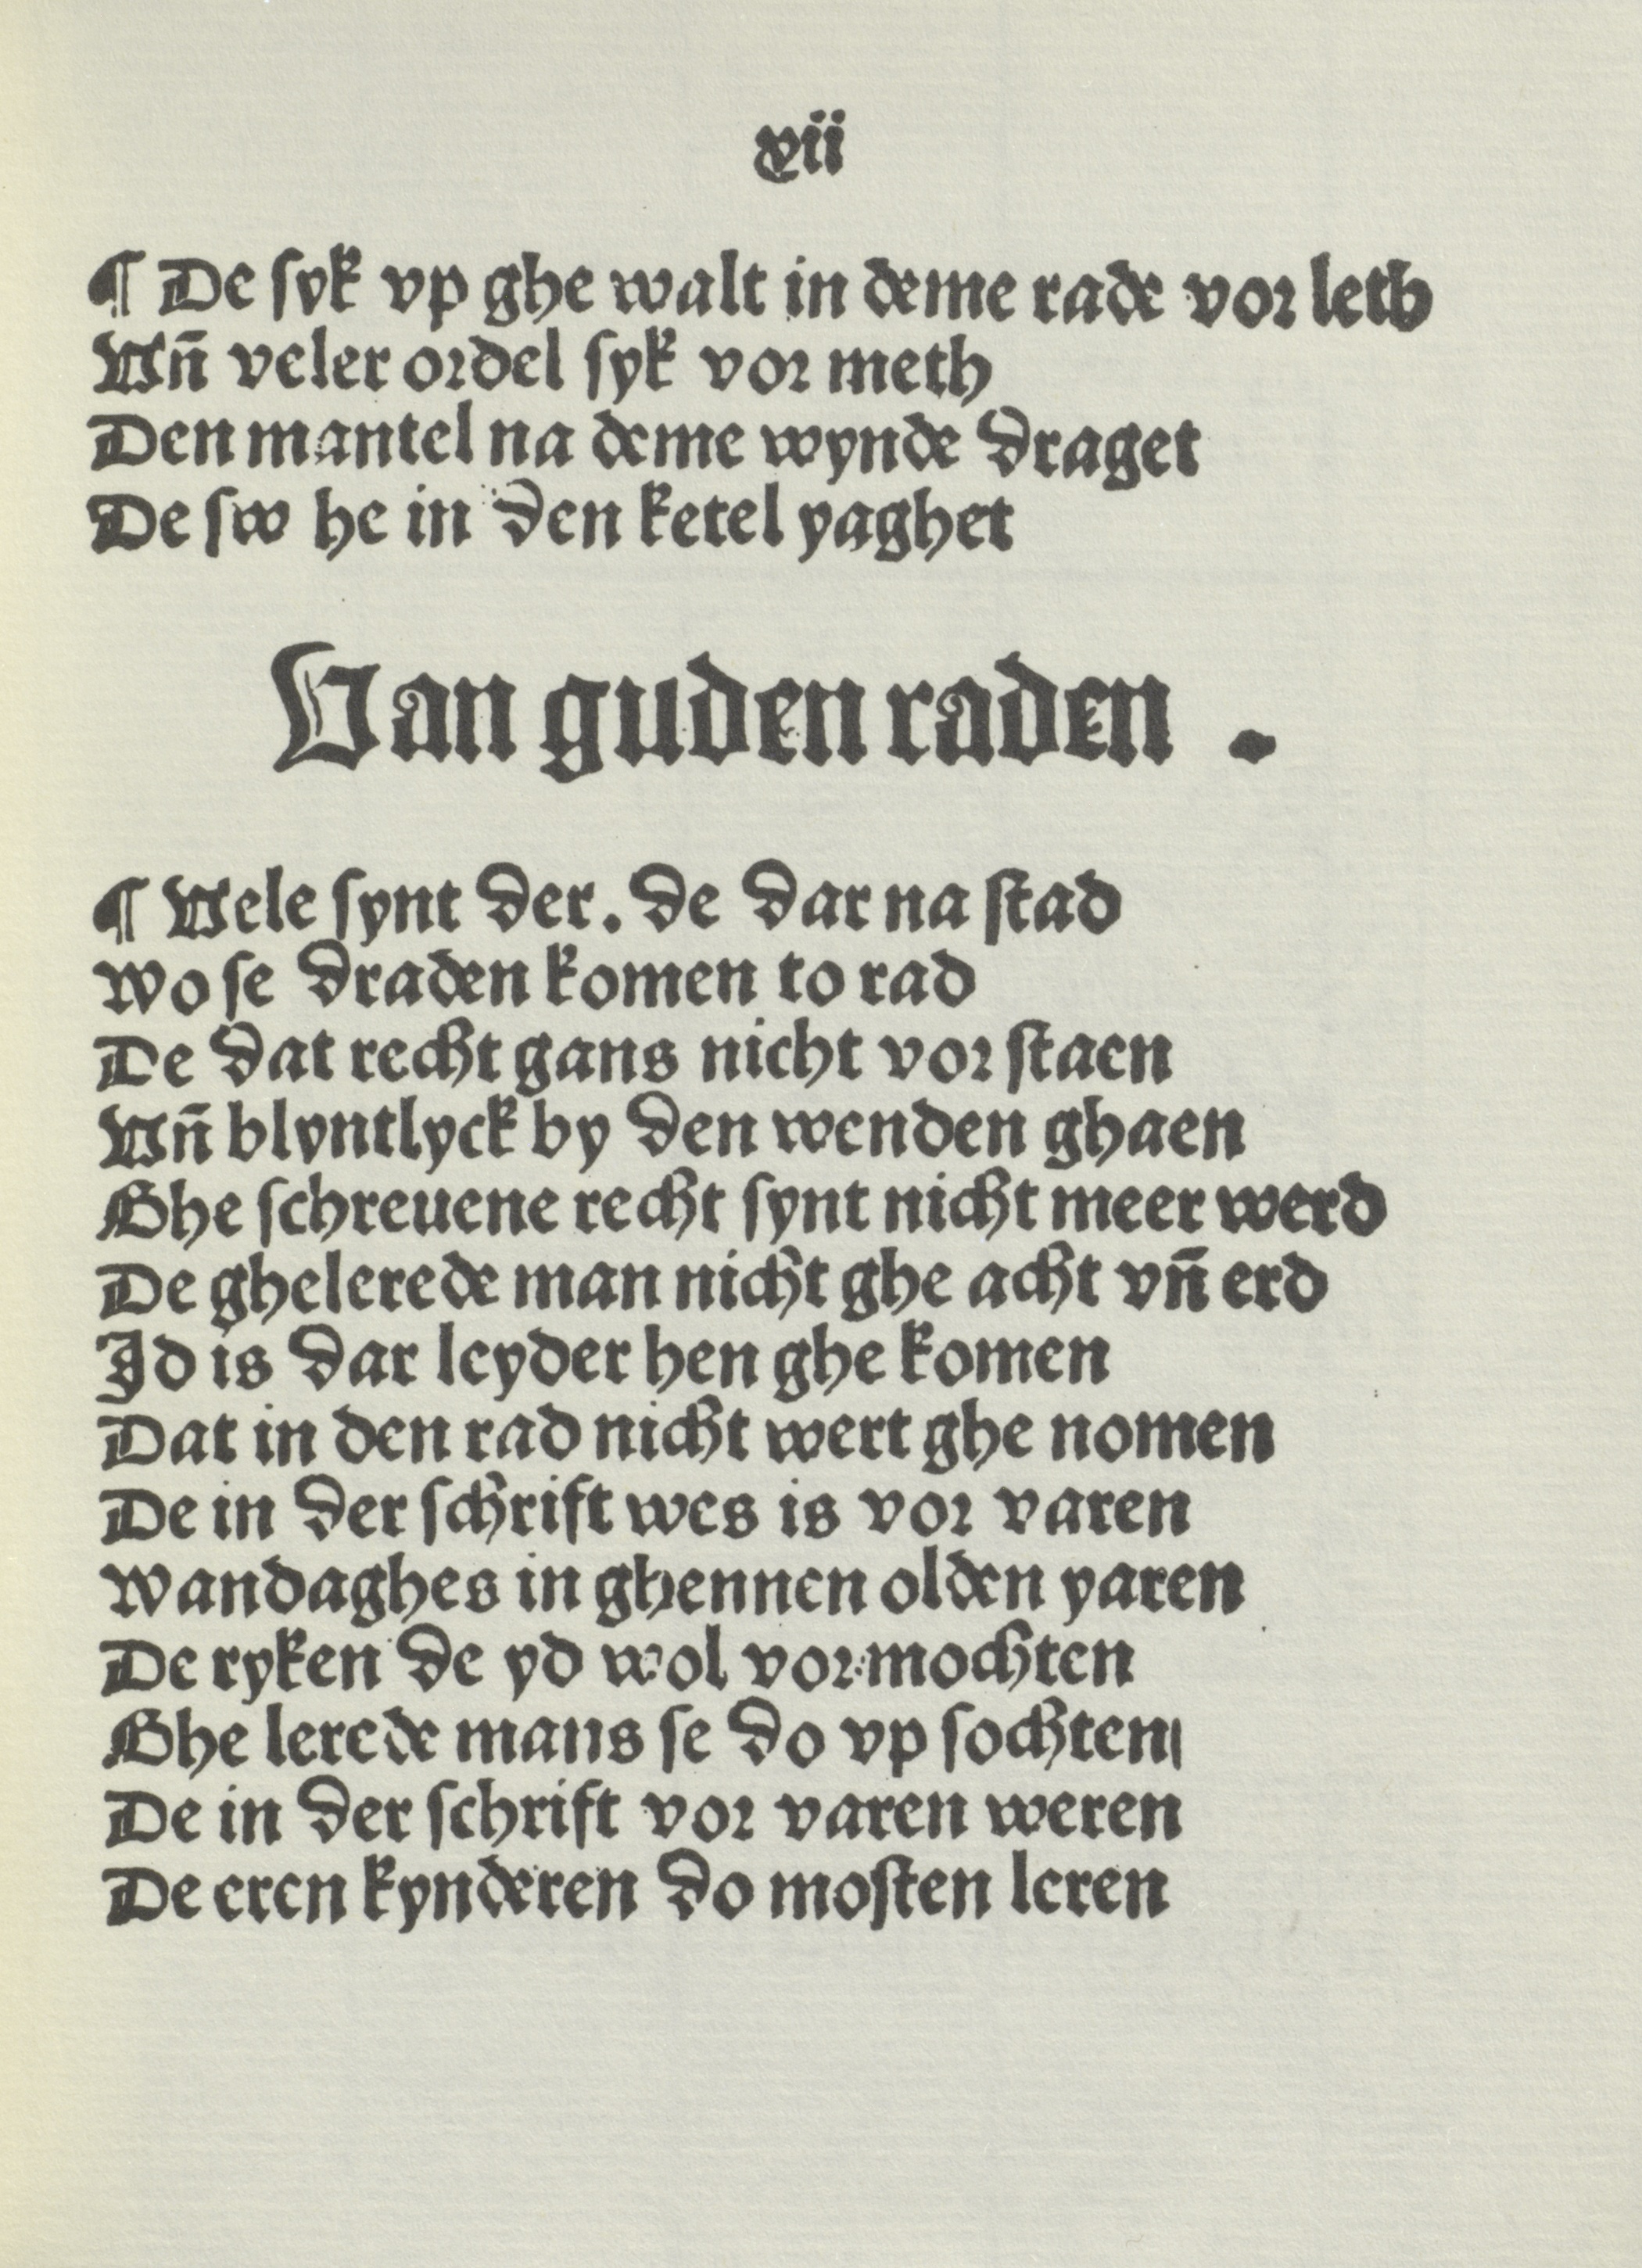 xii
¶ De syk vp ghe walt in deme rade vor leth
Vñ veler ordel syk vor meth
Den mantel na deme wynde draget
De sw he in den ketel yaghet
Van guden raden .
¶ Vele synt der. de dar na stad
wo se draden komen to rad
De dat recht gans nicht vor staen
Vñ blyntlyck by den wenden ghaen
Ghe schreuene recht synt nicht meer werd
De ghelerede man nicht ghe acht vñ erd
Id is dar leyder hen ghe komen
Dat in den rad nicht wert ghe nomen
De in der schrift wes is vor varen
wandaghes in ghennen olden yaren
De ryken de yd wol vor mochten
Ghe lerede mans se do vp sochten
De in der schrift vor varen weren
De eren kynderen do mosten leren